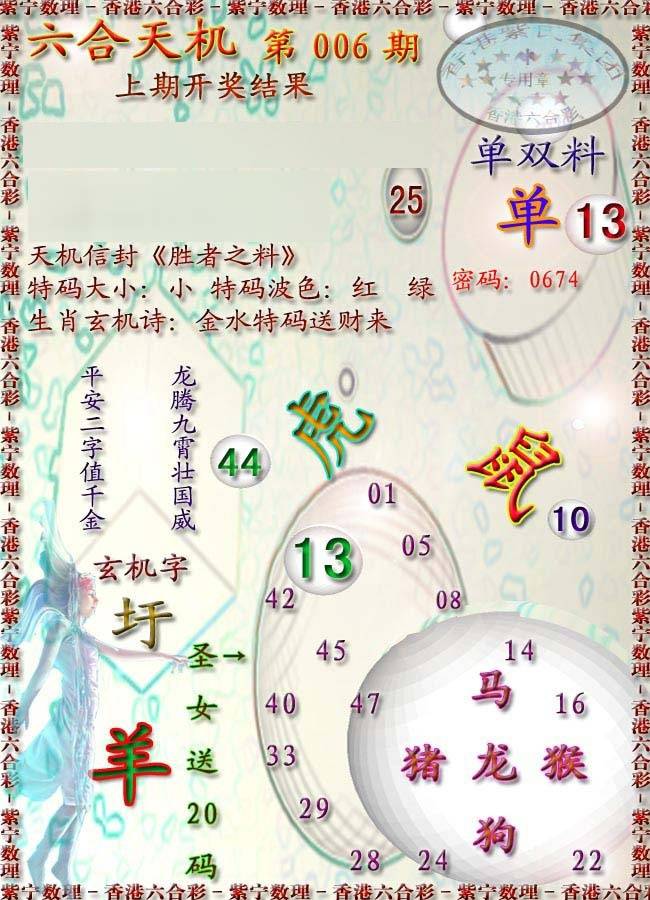 紫宁数理-香港六合彩-紫宁数理-香港六合彩-紫宁数理-香港六合彩-紫宁数理
六合天机 第 006 期
上期开奖结果
香港紫宁集团
专用章
香港六合彩
单双料
单 13
25
天机信封《胜者之料》
特码大小: 小 特码波色: 红 绿
密码: 0674
生肖玄机诗: 金水特码送财来
龙腾九霄壮国威
平安二字值千金
44
虎
鼠
10
01
05
13
42
08
玄机字
圩
圣女送20码
→
45
14
马
40
47
16
羊
猪 龙 猴
33
29
狗
28
24
22
紫宁数理-香港六合彩-紫宁数理-香港六合彩-紫宁数理-香港六合彩-紫宁数理